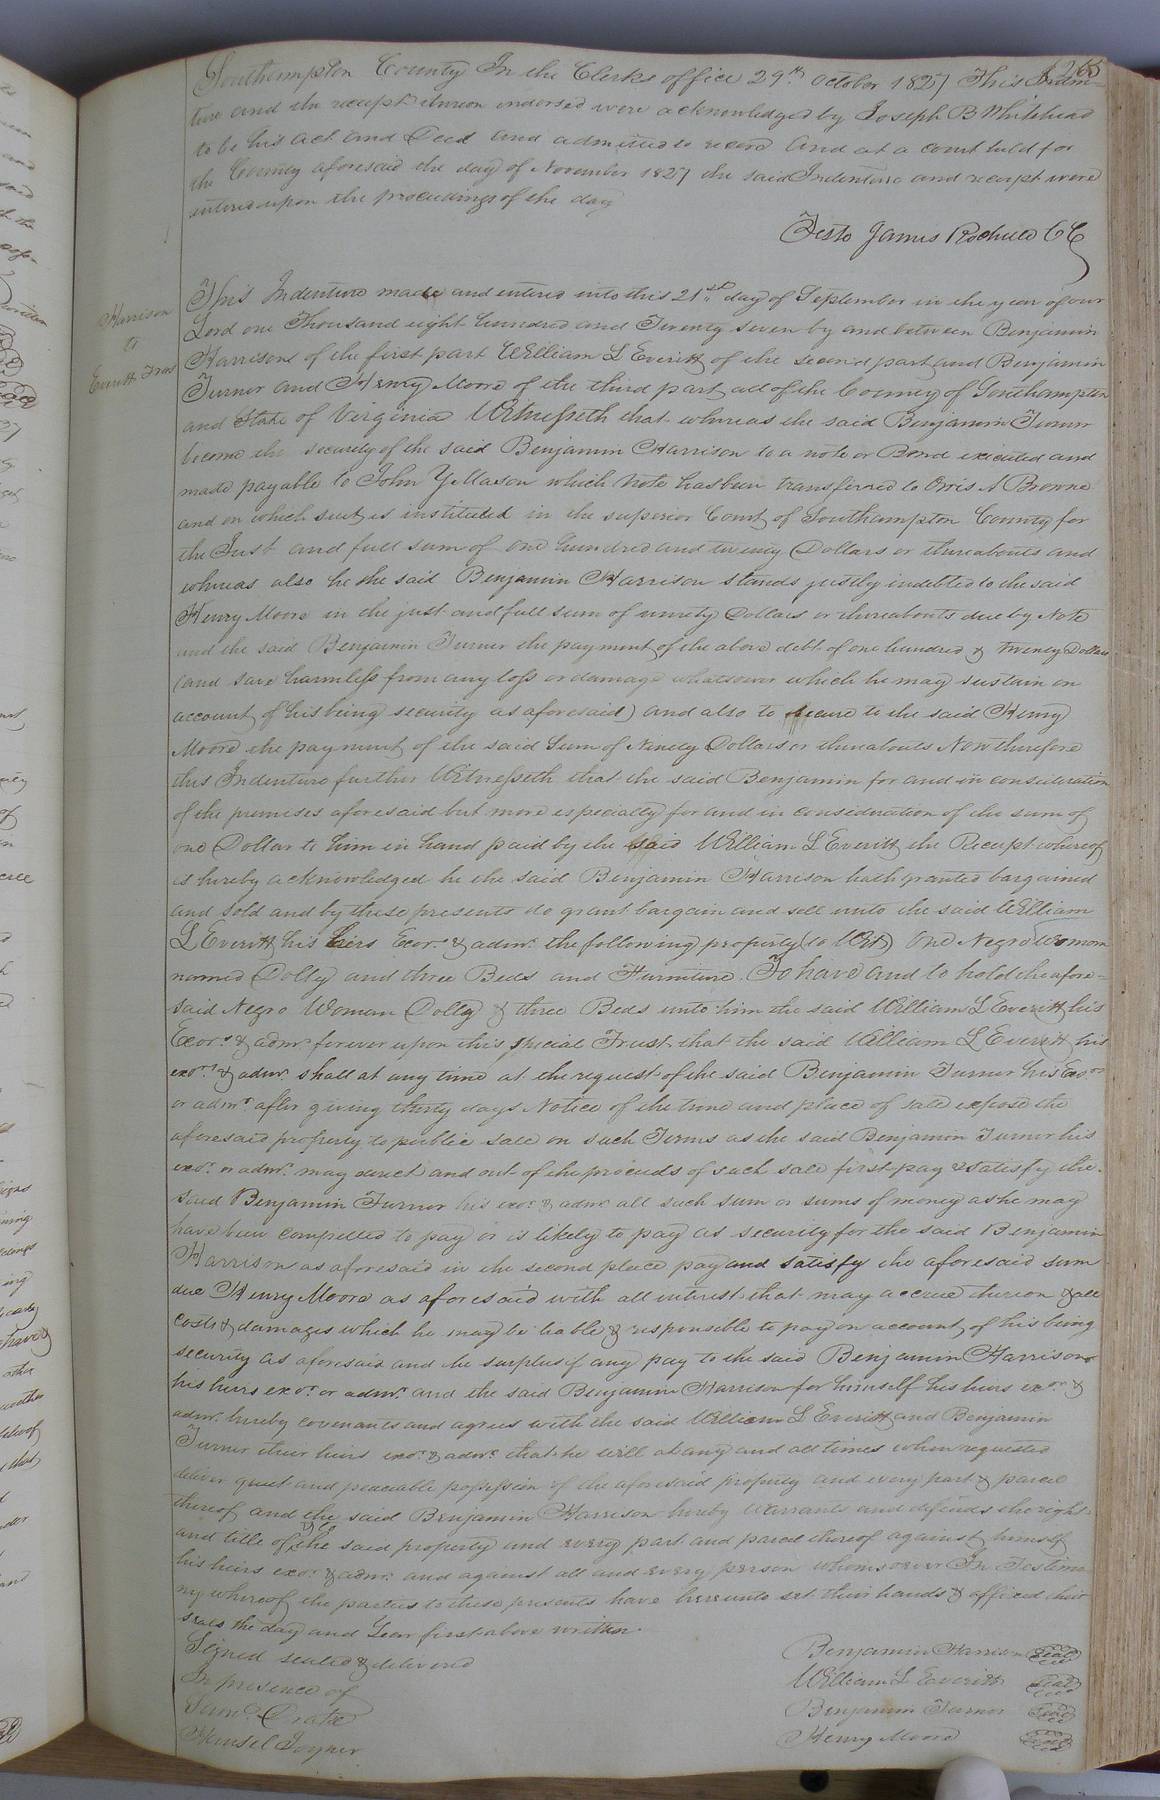 265
Southampton County In the Clerks office 29th October 1827 This Inden=
ture and the receipt thereon endorsed were acknowledged by Joseph B Whitehead
to be his act and Deed and admitted to record And at a court held for
the County aforesaid the day of November 1827 the said Indenture and receipt were
entered upon the proceedings of the day
Teste James Rochelle CC
Harrison
to
Everitt Trus
This Indenture made and entered into this 21st day of September in the year of our
Lord one Thousand eight hundred and Twenty seven by and between Benjamin
Harrison of the first part William L Everitt of the second part and Benjamin
Turner and Henry Moore of the third part all of the County of Southampton
and State of Virginia Witnesseth that whereas the said Benjamin Turner
become the security of the said Benjamin Harrison to a note or Bond executed and
made payable to John Y Mason which Note has been transferred to Orris A Browne
and on which suit is instituted in the superior Court of Southampton County for
the Just and full sum of one hundred and twenty Dollars or thereabouts and
whereas also he the said Benjamin Harrison stands justly indebted to the said
Henry Moore in the just and full sum of ninety Dollars or thereabouts due by Note
and the said Benjamin Turner the payment of the above debt of one hundred & Twenty Dollars
(and save harmless from any loss or damage whatsoever which he may sustain on
account of his being security as aforesaid) and also to secure to the said Henry
Moore the payment of the said Sum of Ninety Dollars or thereabouts Now therefore
this Indenture further Witnesseth that the said Benjamin for and in consideration
of the premises aforesaid but more especially for and in consideration of the sum of
one Dollar to him in hand paid by the said William L Everitt the Receipt whereof
is hereby acknowledged he the said Benjamin Harrison hath granted bargained
and sold and by these presents do grant bargain and sell unto the said William
L Everitt his heirs Exors & admrs the following property (to Wit) One Negro Womom
named Dolly and three Beds and Furniture To have and to hold the afore=
said Negro Woman Dolly & three Beds unto him the said William L Everitt his
Exors & admrs forever upon this special Trust that the said William L Everitt his
exors & admrs shall at any time at the request of the said Benjamin Turner his Exors
or admrs after giving thirty days Notice of the time and place of sale expose the
aforesaid property to public sale on such Terms as the said Benjamin Turner his
exors or admrs may direct and out of the proceeds of such sale first pay & satisfy the
said Benjamin Turner his exors & admrs all such sum or sums of money as he may
have been compelled to pay or is likely to pay as security for the said Benjamin
Harrison as aforesaid in the second place pay and satisfy the aforesaid sum
due Henry Moore as aforesaid with all interest that may accrue thereon & all
costs & damages which he may be liable & responsible to pay on account of his being
security as aforesaid and the surplus if any pay to the said Benjamin Harrison
his heirs exors or admrs and the said Benjamin Harrison for himself his heirs exors &
admrs hereby covenants and agrees with the said William L Everitt and Benjamin
Turner their heirs exors & admrs that he will at any and all times when requested
deliver quiet and peaceable possession of the aforesaid property and every part & parcel
thereof and the said Benjamin Harrison hereby warrants and defends the right
and title of the said property and every part and parcel thereof against himself
his heirs exors & admrs and against all and every person whomsoever In Testimo
ny whereof the parties to these presents have hereunto set their hands & affixed their
seals the day and Year first above written.
Signed sealed & delivered
In presence of
Saml Drake
Hensel Joyner
Benjamin Harrison Seal
William L Everitt Seal
Benjamin Turner Seal
Henry Moore Seal